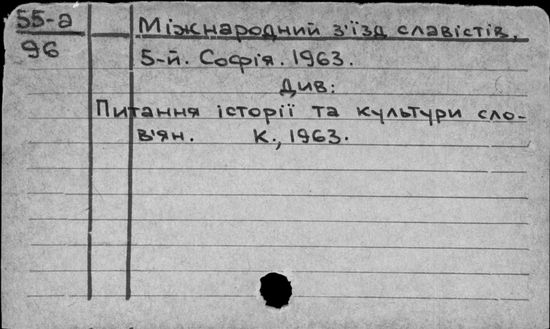 55-а
96
Міжнародний з'їзд славістів,
5-й. Софія. 1963.
Див:
Питання історії та культури сло-
в'ян. К., 1963.